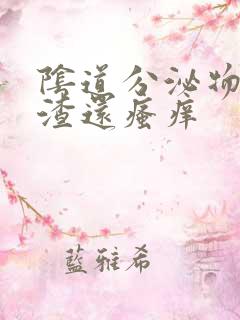 陰道分泌物
渣還瘙癢
藍雅希